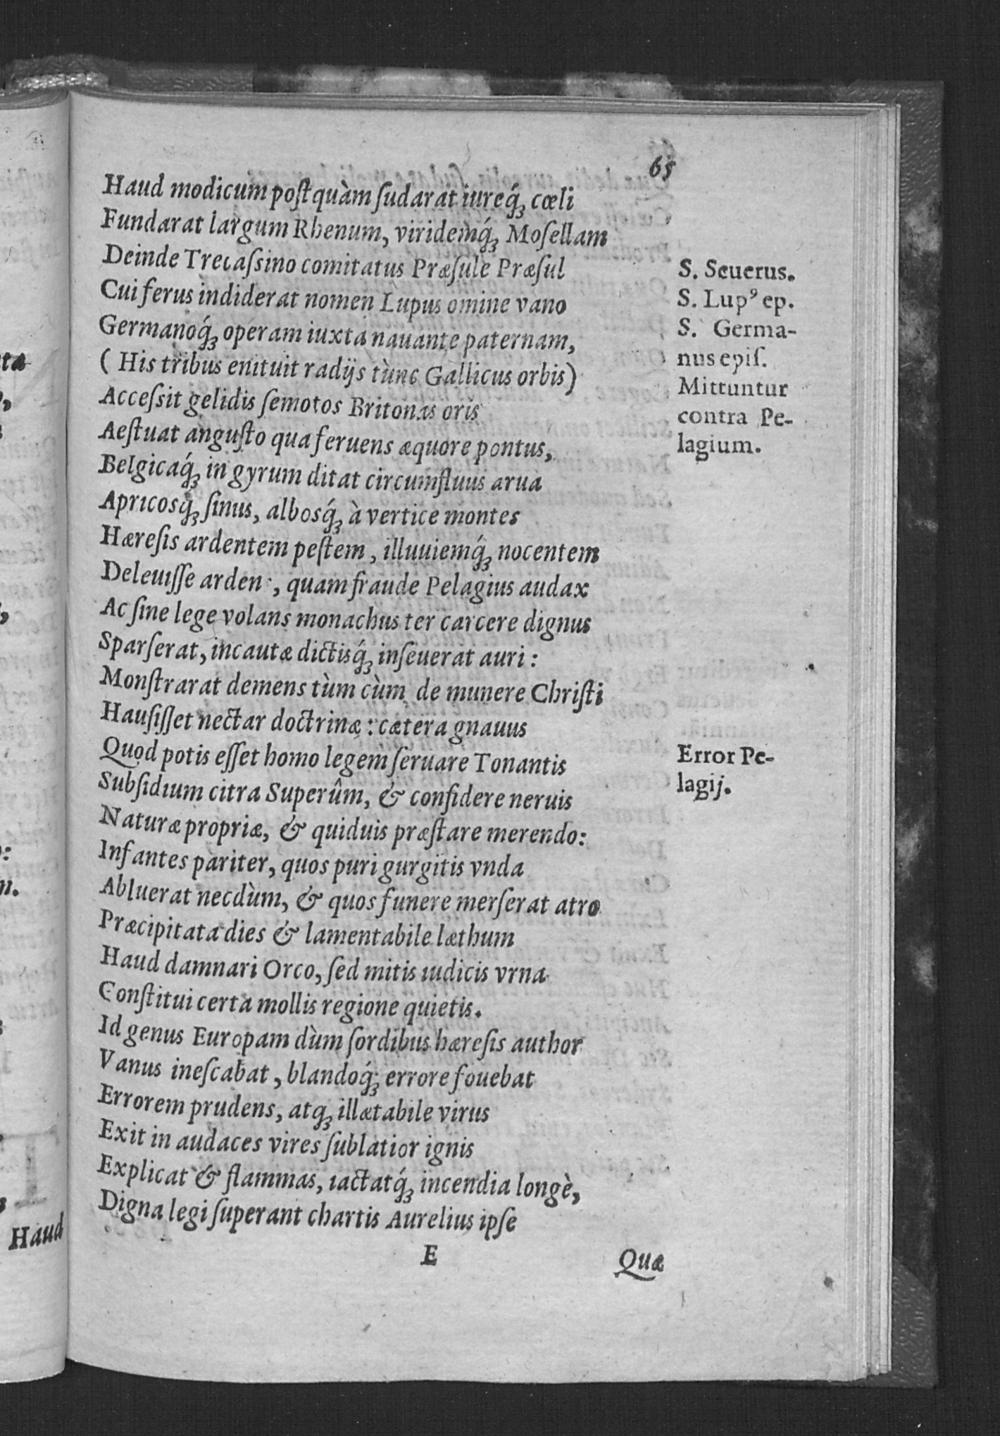 65
Haud modicum postquàm sudarat iureq́ꝫ cœli
Fundarat largum Rhenum, viridemq́ꝫ Mosellam
Deinde Trecassino comitatus Præsule Præsul
Cui ferus indiderat nomen Lupus omine vano
Germanoq́ꝫ operam iuxta nauante paternam,
( His tribus enituit radijs tùnc Gallicus orbis)
Accessit gelidis semotos Britonas oris
Aestuat angusto qua feruens æquore pontus,
Belgicaq́ꝫ in gyrum ditat circumfluus arua
Apricosq́ꝫ sinus, albosq́ꝫ à vertice montes
Hæresis ardentem pestem, illuuiemq́ꝫ nocentem
Deleuisse arden, quam fraude Pelagius audax
Ac sine lege volans monachus ter carcere dignus
Sparserat, incautæ dictisq́ꝫ inseuerat auri :
Monstrarat demens tùm cùm de munere Christi
Hausisset nectar doctrinæ : cætera gnauus
Quod potis esset homo legem seruare Tonantis
Subsidium citra Superûm, & confidere neruis
Naturæ propriæ, & quiduis præstare merendo:
Infantes pariter, quos puri gurgitis vnda
Abluerat necdùm, & quos funere merserat atro
Præcipitata dies & lamentabile læthum
Haud damnari Orco, sed mitis iudicis vrna
Constitui certa mollis regione quietis.
Id genus Europam dùm sordibus hæresis author
Vanus inescabat, blandoq́ꝫ errore fouebat
Errorem prudens, atqꝫ illætabile virus
Exit in audaces vires sublatior ignis
Explicat & flammas, iactatq́ꝫ incendia longè,
Digna legi superant chartis Aurelius ipse
E
Quæ
S. Seuerus.
S. Lupꝰ ep.
S. Germa-
nus epis.
Mittuntur
contra Pe-
lagium.
Error Pe-
lagij.
Haud